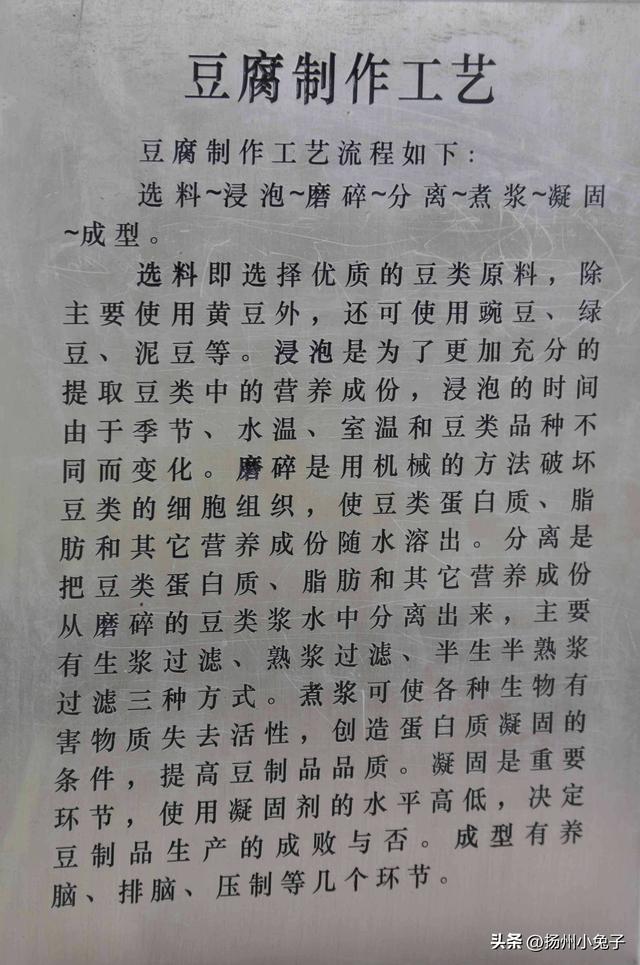 豆腐制作工艺
豆腐制作工艺流程如下：
选料~浸泡~磨碎~分离~煮浆~凝固
~成型。
选料即选择优质的豆类原料，除
主要使用黄豆外，还可使用豌豆、绿
豆、泥豆等。浸泡是为了更加充分的
提取豆类中的营养成份，浸泡的时间
由于季节、水温、室温和豆类品种不
同而变化。磨碎是用机械的方法破坏
豆类的细胞组织，使豆类蛋白质、脂
肪和其它营养成份随水溶出。分离是
把豆类蛋白质、脂肪和其它营养成份
从磨碎的豆类浆水中分离出来，主要
有生浆过滤、熟浆过滤、半生半熟浆
过滤三种方式。煮浆可使各种生物有
害物质失去活性，创造蛋白质凝固的
条件，提高豆制品品质。凝固是重要
环节，使用凝固剂的水平高低，决定
豆制品生产的成败与否。成型有养
脑、排脑、压制等几个环节。
头条 @扬州小兔子